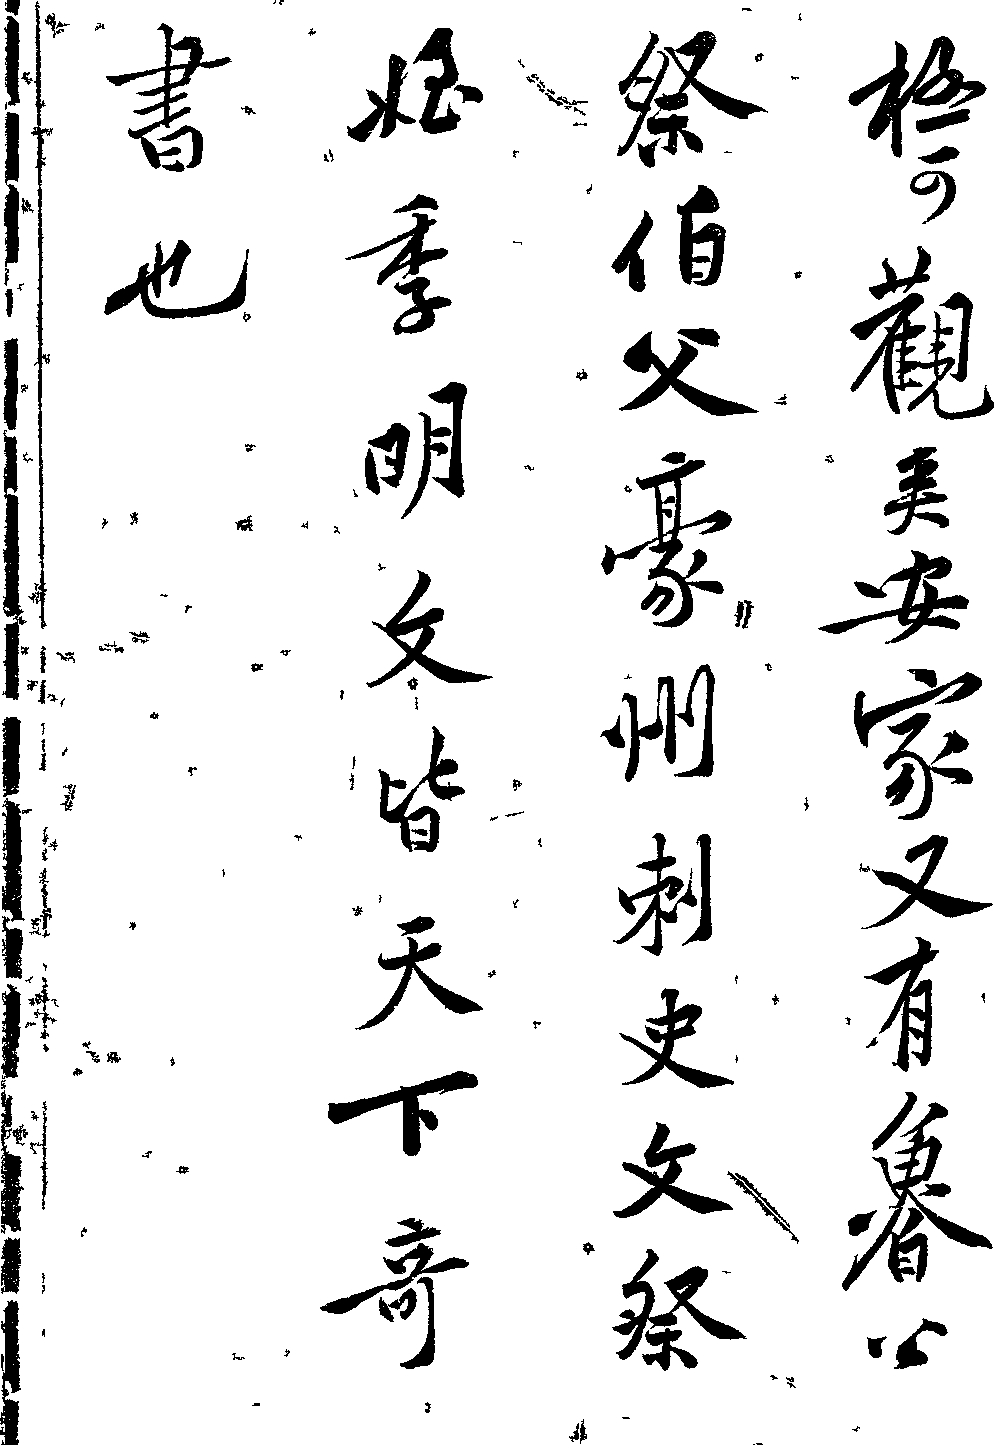 極可觀長安家又有魯公
祭伯父豪州刺史文祭
姪季明文皆天下奇
書也